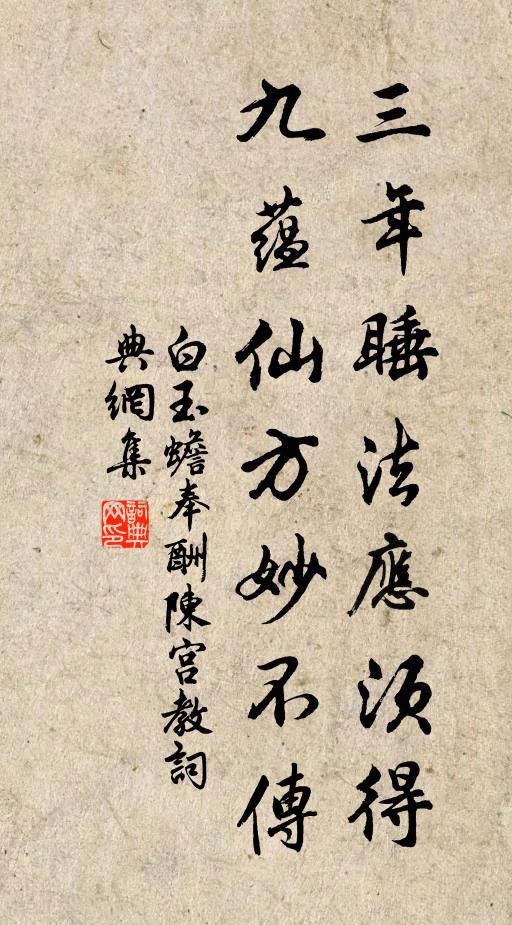 三年睡法應須得
九蘊仙方妙不傳
白玉蟾奉酬陳宮教詞
典網集
詞典網印